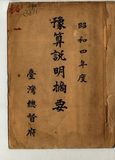 昭和四年度
豫算説明摘要
臺灣總督府